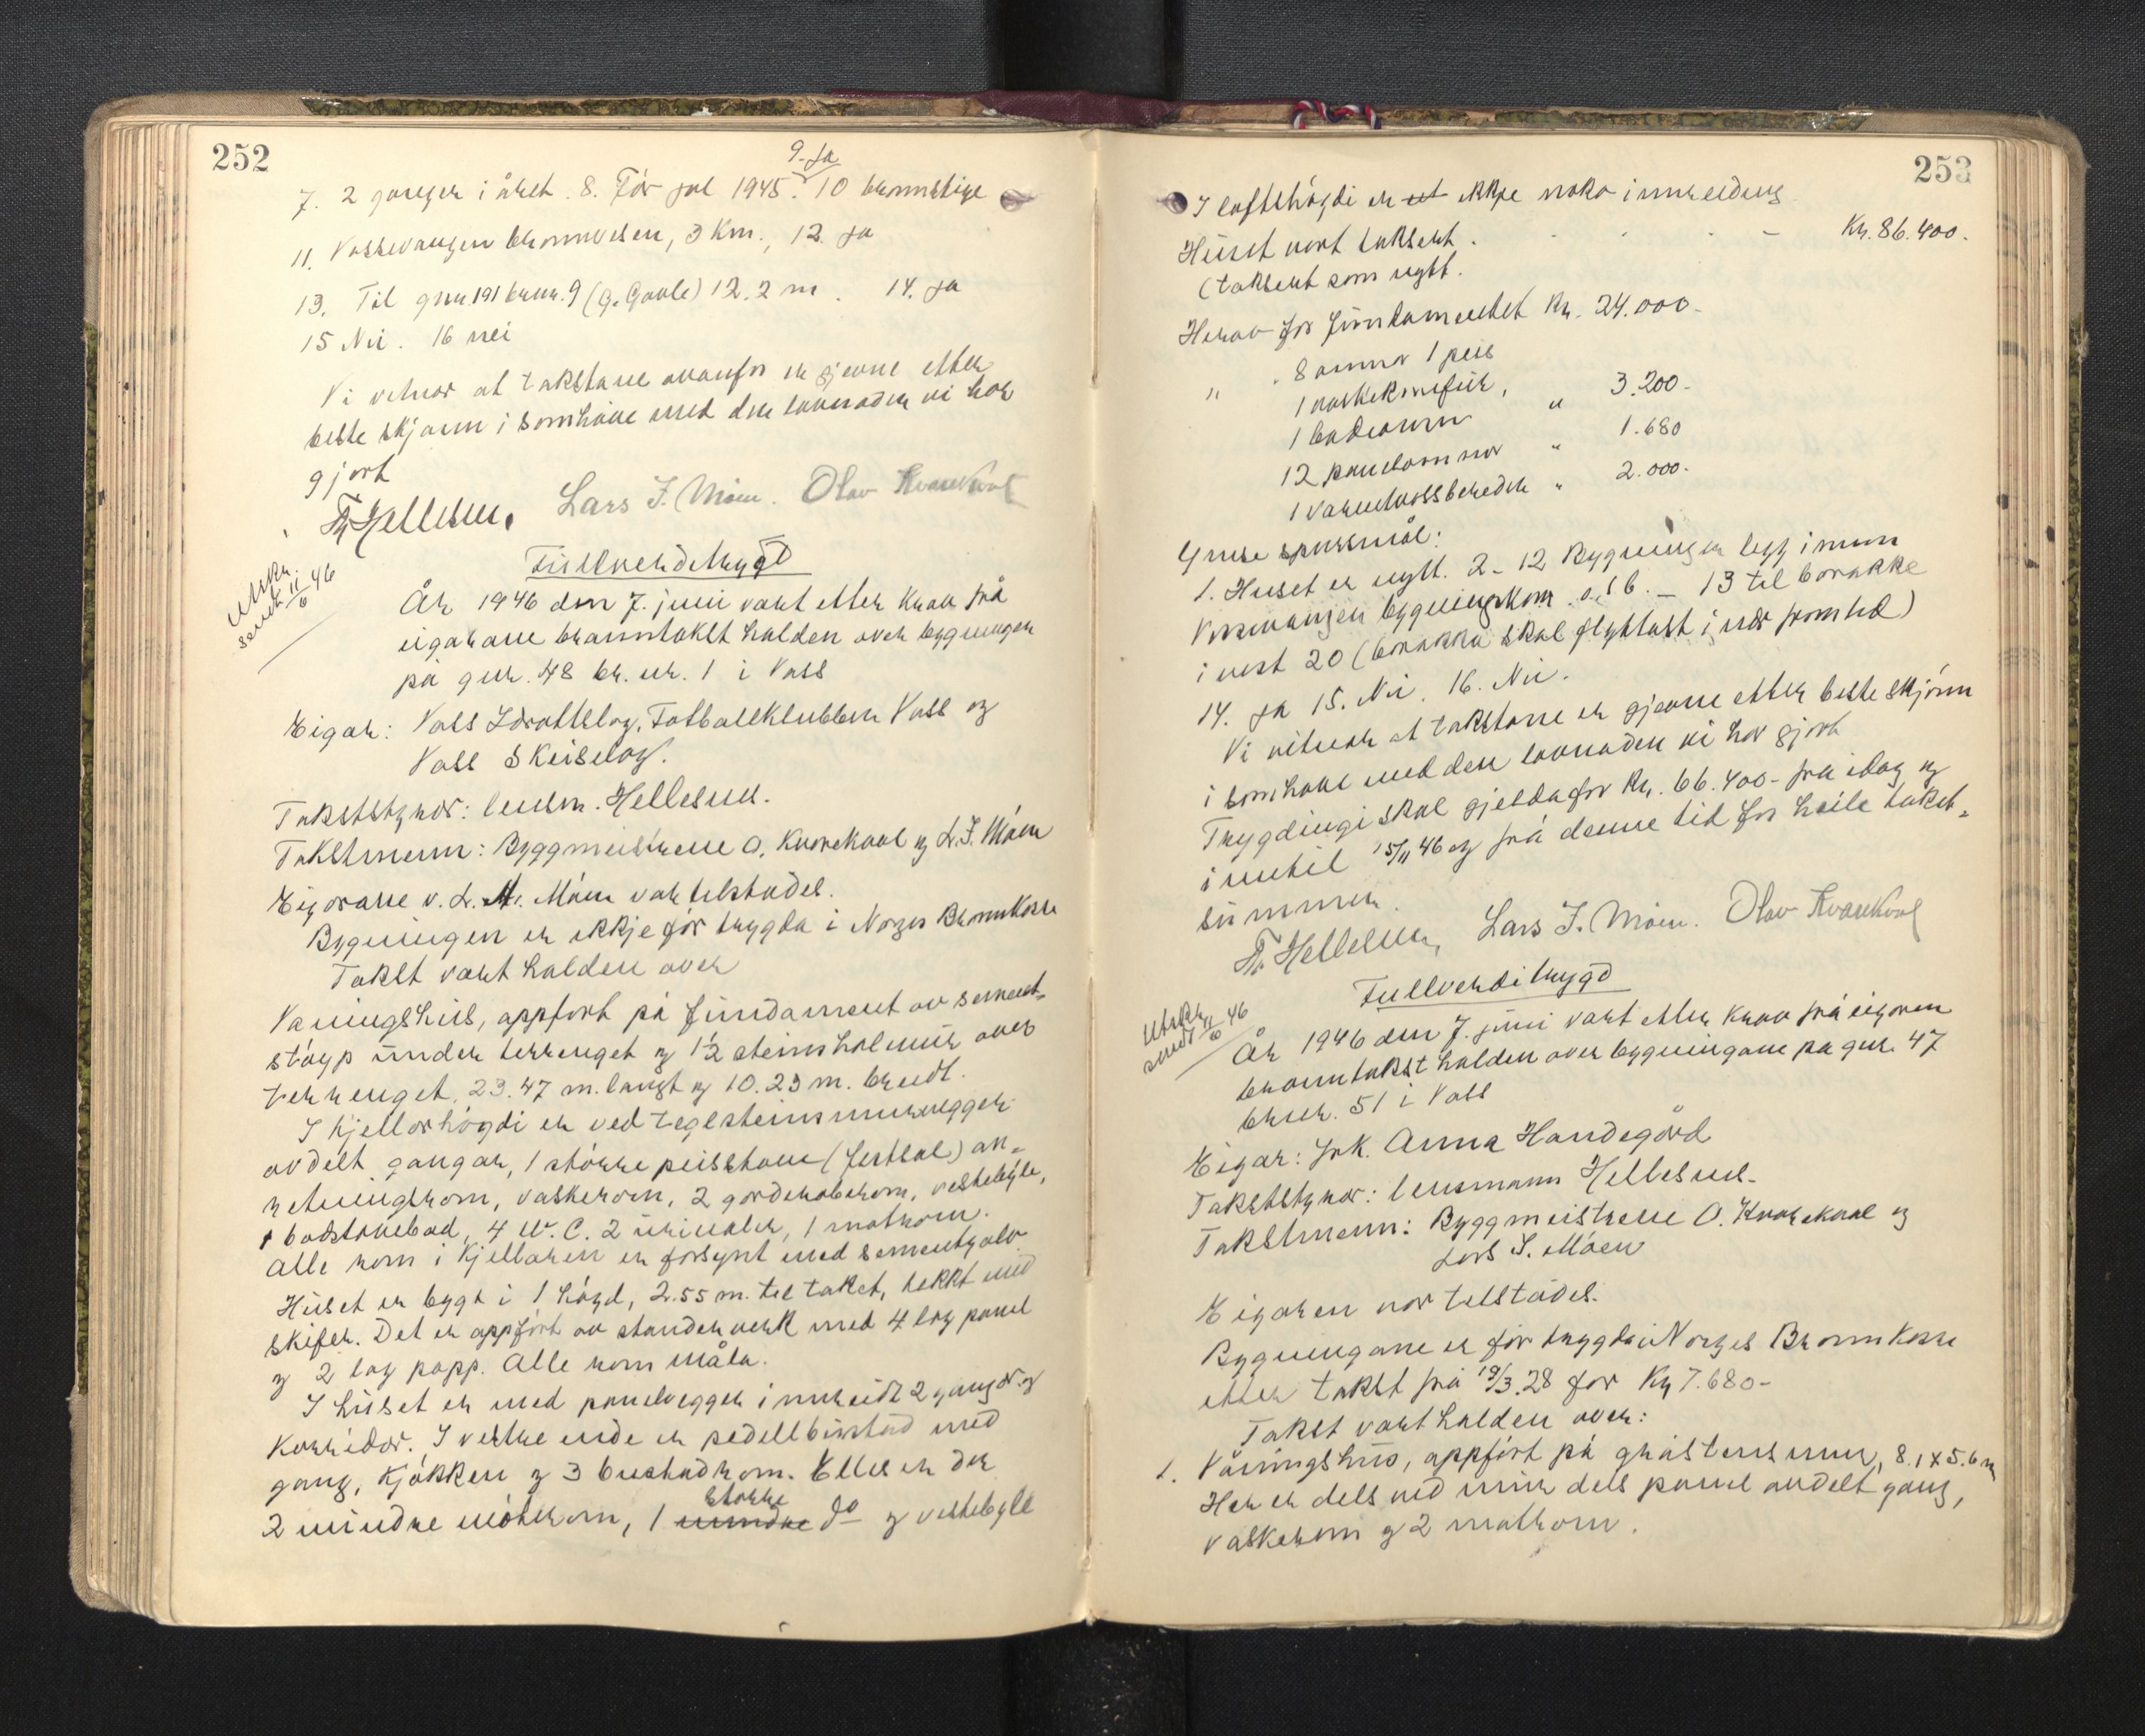 252
9. ja
7. 2 gonger i året. 8. Før jul 1945. 10 brannstige
11. Vossevangen brannvesen, 3 Km., 12. ja
13. Til gnr. 191 bnr. 9 (G. Gavle) 12.2 m. 14. ja
15 Nei. 16 nei
Vi vitnar at takstane ovanfor er gjevne etter
beste skjønn i somhøve med den lovnaden vi har
gjort
Hellesnes. Lars J. Møen. Olav Kvarekval
Fullverditrygd
Utskr.
sendt 11/6 46
År 1946 den 7. juni vart etter krav frå
eigarane branntakst halden over bygningen
på gnr. 48 br. nr. 1 i Voss
Eigar: Voss Idrottslag, Fotballklubben Voss og
Voss Skeiselag.
Takststyrar: lensm. Hellesnes.
Takstmenn: Byggmeistrene O. Kvarekval og L. J. Møen
Eigarane v. L. M. Møen var tilstades.
Bygningen er ikkje før trygda i Norges Brannkasse
Takst vart halden over
Våningshus, oppført på fundament av sement-
støyp under terrenget og 1½ steins holmur over
terrenget. 23.47 m. langt og 10.23 m. breidt.
I kjellarhøgdi er ved teglsteinsmurvegger
avdelt gangar, 1 større peisstove (festsal) an-
retningsrom, vaskerom, 2 garderoberom, vestebyle,
1 badstovebad, 4 W.C. 2 urinaler, 1 matrom.
Alle rom i kjellaren er forsynt med sementgolv
Huset er bygt i 1 høgd, 2.55 m. til taket, tekkt med
skifer. Det er oppført av standerverk med 4 lag panel
og 2 lag papp. Alle rom måla.
I huset er med panelvegger innreidt 2 gangar og
korridor. I vestre ende er pedellbustad med
gang, kjøkken og 3 bustadrom. Elles er der
større
2 mindre møterom, 1 mindre do og vestebyle
253
I loftshøgdi er et ikkje noko innreiding
Huset vart taksert . . . . – Kr. 86.400.
(taksert som nytt.
Herav for fundamentet Kr. 24.000.-
" . 8 omnar 1 peis
1 vaskekomfur,
1 badeomn " 3.200.-
12 panelomnar " 1.680
1 varmtvassbereder " 2.000.-
Ymse spursmål:
1. Huset er nytt. 2 - 12 Bygningen ligg innan
Vossevangen bygningskom. o.s.b. – 13 til barakke
i vest 20 (barakka skal flyttast i nær framtid)
14. ja 15. Nei. 16. Nei.
Vi vitnar at takstane er gjevne etter beste skjønn
i somhøve med den lovnaden vi har gjort
Trygdingi skal gjelda for Kr. 66.400- frå idag og
inntil 15/11 46 og frå denne tid for heile takst-
summen.
Hellesnes, Lars J. Møen. Olav Kvarekval
Fullverditrygd
Utskr.
sendt 11/6 46
År 1946 den 7. juni vart etter krav frå eigaren
branntakst halden over bygningane på gnr. 47
brnr. 51 i Voss
Eigar: Frk. Anna Handegård
Takststyrar: lensmann Hellesnes.
Takstmenn: Byggmeistrene O. Kvarekval og
Lars J. Møen
Eigaren var tilstades.
Bygningane er før trygda i Norges Brannkasse
etter takst frå 19/3.28 for Kr 7.680-
Takst vart halden over:
1. Våningshus, oppført på gråsteinsmur, 8.1 x 5.6 m
Her er dels ved mur dels panel avdelt gang,
vaskerom og 2 matrom.